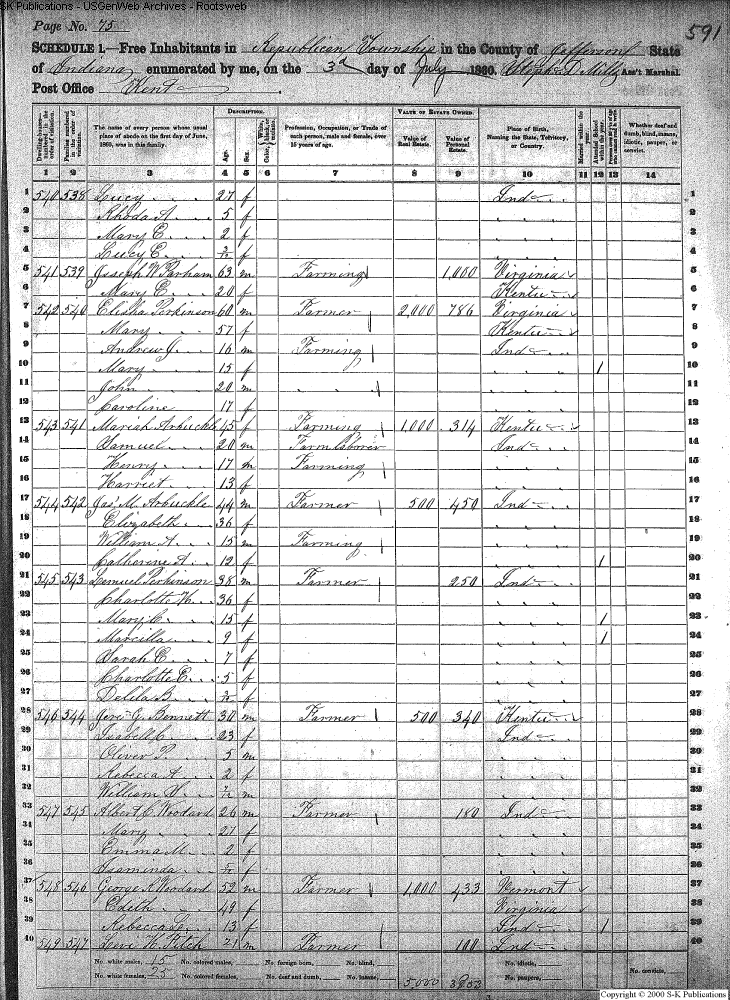 S-K Publications - USGenWeb Archives - Rootsweb
Page No. 75
591
SCHEDULE 1.—Free Inhabitants in Republican Township in the County of Jefferson State
of Indiana enumerated by me, on the 3d day of July 1860. Steph D. Mills Ass't Marshal.
Post Office Kent
DESCRIPTION. VALUE OF ESTATE OWNED.
Dwelling-houses—numbered in the order of visitation. Families numbered in the order of visitation. The name of every person whose usual place of abode on the first day of June, 1860, was in this family. Age. Sex. Color, White, black, or mulatto. Profession, Occupation, or Trade of each person, male and female, over 15 years of age. Value of Real Estate. Value of Personal Estate. Place of Birth, Naming the State, Territory, or Country. Married within the year. Attended School within the year. Whether deaf and dumb, blind, insane, idiotic, pauper, or convict.
1 2 3 4 5 6 7 8 9 10 11 12 13 14
1 540 538 Lucy 27 f Ind 1
2 Rhoda A 5 f 2
3 Mary E 2 f 3
4 Lucy E f 4
5 541 539 Joseph W Parham 63 m Farming 1,000 Virginia 5
6 Mary E 20 f Kentu 6
7 542 540 Elisha Perkinson 60 m Farmer 2,000 786 Virginia 7
8 Mary 57 f Kentu 8
9 Andrew J. 16 m Farming Ind 9
10 Mary 15 f 1 10
11 John 20 m 11
12 Caroline 17 f 12
13 543 541 Mariah Arbuckle 45 f Farming 1,000 314 Kentu 13
14 Samuel 20 m Farmlaborer Ind 14
15 Henry 17 m Farming 15
16 Harriet 13 f 16
17 544 542 Jas. M. Arbuckle 44 m Farmer 500 450 Ind 17
18 Elizabeth 36 f 18
19 William A 15 m Farming 19
20 Catherine A 12 f 1 20
21 545 543 Lemuel Perkinson 38 m Farmer 250 Ind 21
22 Charlotte H. 36 f 22
23 Mary C. 15 f 1 23
24 Marcilla 9 f 1 24
25 Sarah E. 7 f 25
26 Charlotte E. 5 f 26
27 Delila B f 27
28 546 544 Bennett 30 m Farmer 500 340 Kentu 28
29 Isabell C. 23 f Ind 29
30 Oliver P. 5 m 30
31 Rebecca A 2 f 31
32 William H. m 32
33 547 545 Albert C. Woodard 26 m Farmer 180 Ind 33
34 Mary 21 f 34
35 Emma M 2 f 35
36 Isaminda f 36
37 548 546 George K Woodard 52 m Farmer 1,000 433 Vermont 37
38 Edith 49 f Virginia 38
39 Rebecca 13 f Ind 1 39
40 549 547 Levi H. Fitch 21 m Farmer 100 Ind 40
No. white males, 15 No. colored males, No. foreign born, No. blind, No. idiotic, No. convicts,
No. white females, 25 No. colored females, No. deaf and dumb, No. insane, 5,000 No. paupers,
Copyright © 2000 S-K Publications